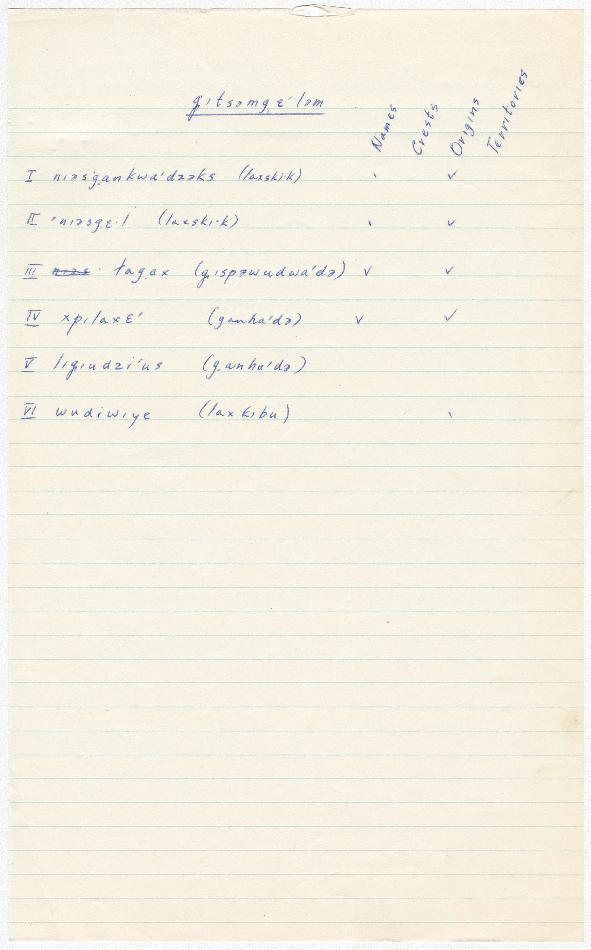 g̣ɪtsəmg̣ɛ´ləm
Names Crests Origins Territories
I nɪəsg̣ankwa´dzəəks (laxski·k) ✓
II 'nɪəsg̣ɛ·l (laxski·k) ✓
III łag̣ax (g̣ɪspəwudwa´də) ✓ ✓
IV xpɪlaxɛ´ (g̣anha´də) ✓ ✓
V lɪg̣ɪudzi´us (g̣anha´də)
VI wudiwɪye (laxkɪbu)